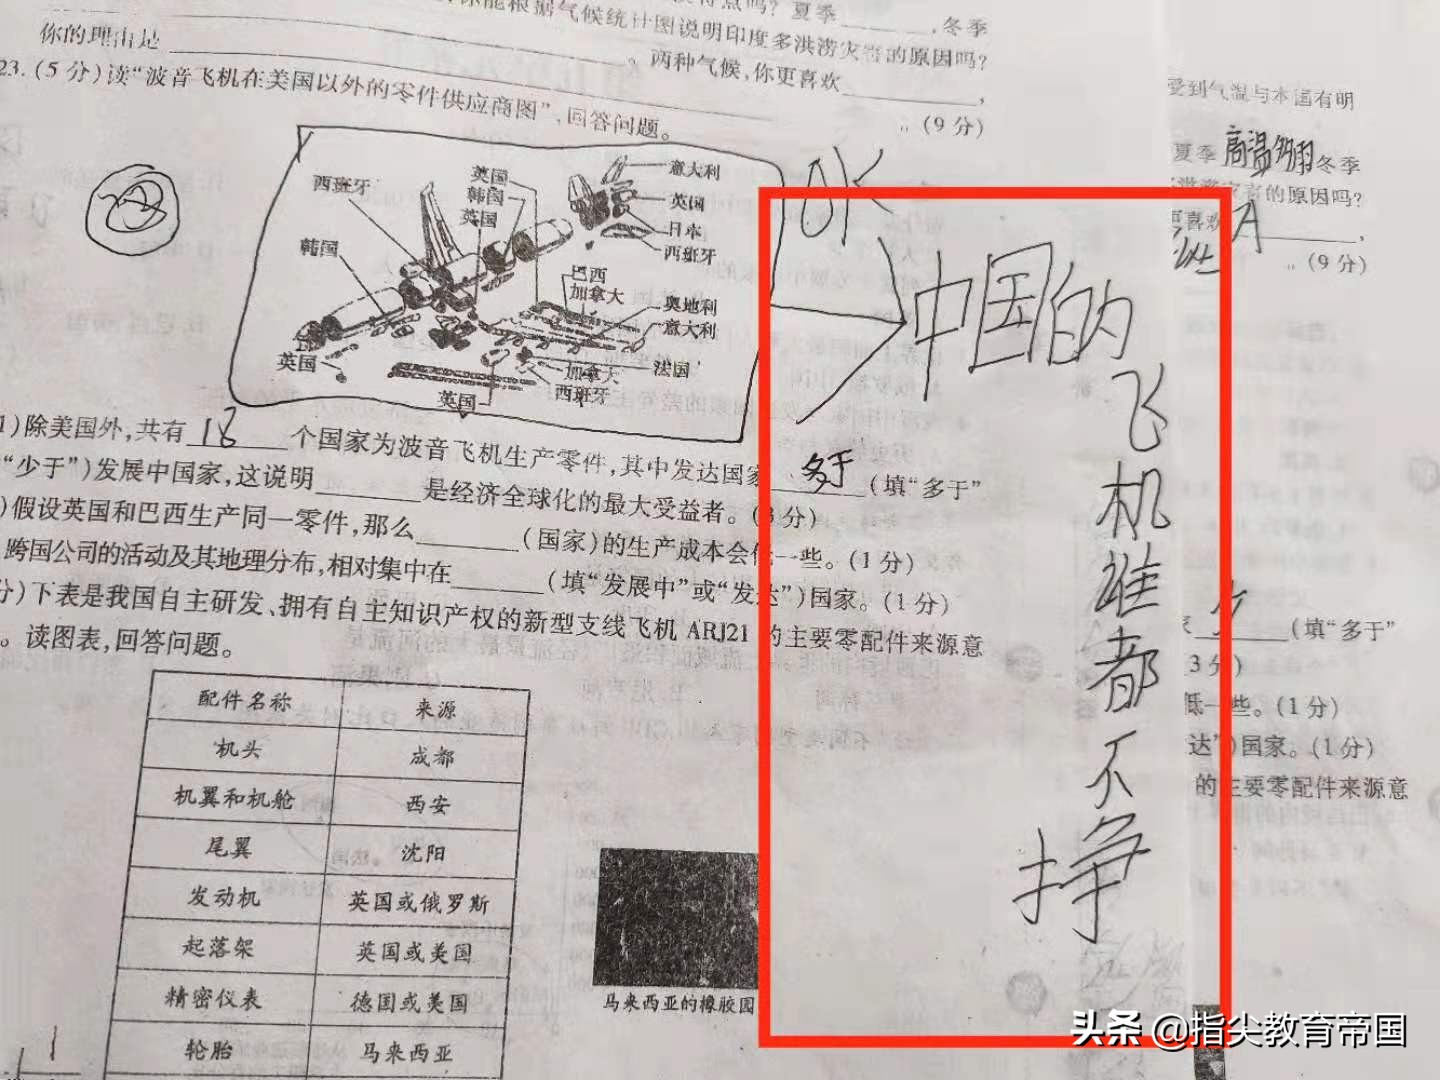 冬季
你能根据气候统计图说明印度多洪涝灾害的原因吗?
你的理由是
两种气候,你更喜欢
(9分)
23.(5分)读“波音飞机在美国以外的零件供应商图”,回答问题。
西班牙
英国
韩国
英国
意大利
英国
日本
西班牙
韩国
巴西
加拿大
奥地利
意大利
英国
加拿大
法国
英国
西班牙
OK
中国的
飞
机谁都不
挣
1)除美国外,共有 18 个国家为波音飞机生产零件,其中发达国家 多于 (填“多于”
“少于”)发展中国家,这说明 是经济全球化的最大受益者。(3分)
)假设英国和巴西生产同一零件,那么 (国家)的生产成本会低一些。(1分)
跨国公司的活动及其地理分布,相对集中在 (填“发展中”或“发达”)国家。(1分)
分)下表是我国自主研发、拥有自主知识产权的新型支线飞机ARJ21的主要零配件来源意
。读图表,回答问题。
配件名称 来源
机头 成都
机翼和机舱 西安
尾翼 沈阳
发动机 英国或俄罗斯
起落架 英国或美国
精密仪表 德国或美国
轮胎 马来西亚
马来西亚的橡胶园
受到气温与本国有明
夏季 高温多雨 冬季
洪涝灾害的原因吗?
更喜欢 A ,
(9分)
(填“多于”
3分)
低一些。(1分)
达”)国家。(1分)
的主要零配件来源意
头条 @指尖教育帝国